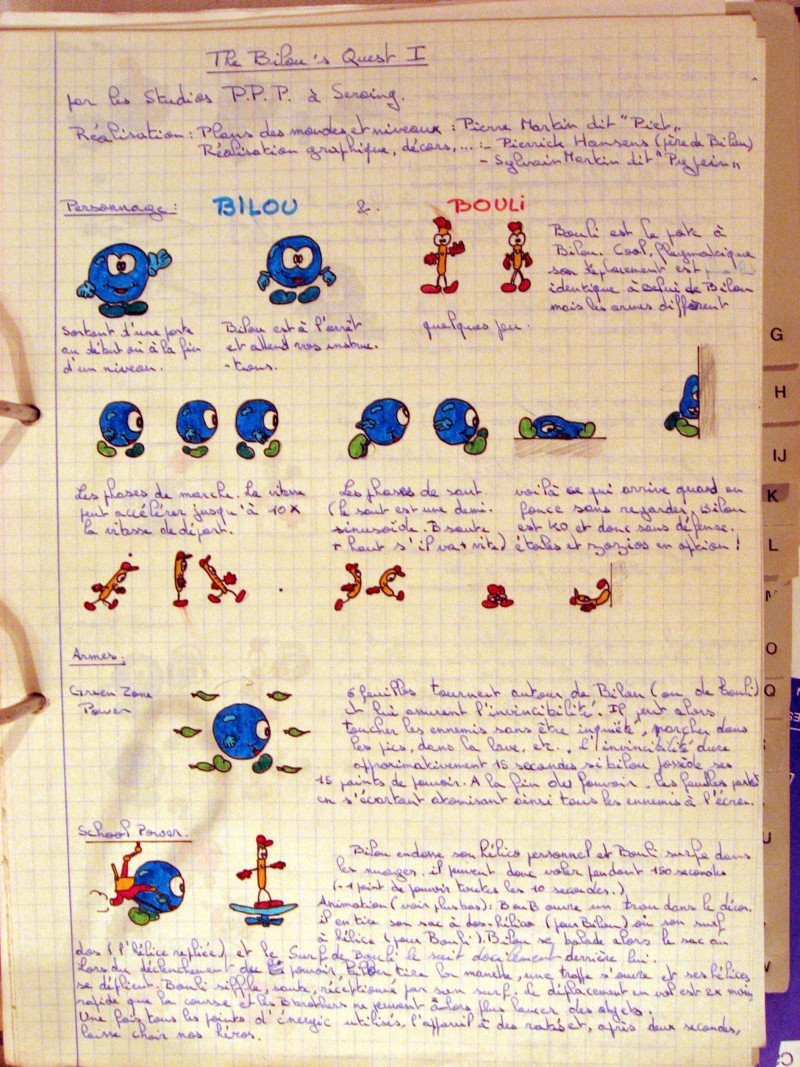 The Bilou's Quest I
par les Studios P.P.P. à Seraing.
Réalisation : Plans des mondes et niveaux : Pierre Martin dit "Piet"
Réalisation graphique, décors, ... - Pierrick Hansens (père de Bilou)
- Sylvain Martin dit "Pypein"
Personnage : BILOU & BOULI
Bouli est la pote à
Bilou. Cool, flegmatique
son déplacement est
identique à celui de Bilou
mais les armes diffèrent
quelques peu.
Sortant d'une porte
au début ou à la fin
d'un niveau.
Bilou est à l'arrêt
et attend vos instruc-
-tions.
Les phases de marche. La vitesse
peut accélérer jusqu'à 10x
la vitesse de départ.
Les phases de saut
(le saut est une demi.
sinusoïde. B saute
+ haut s'il va + vite)
voilà ce qui arrive quand on
fonce sans regarder. Bilou
est KO et donc sans défense.
étoiles et zozios en option !
Armes.
Green Zone
Power
6 feuilles tournent autour de Bilou (ou de Bouli)
et lui assurent l'invincibilité. Il peut alors
toucher les ennemis sans être inquiété, marcher dans
les pics, dans la lave, etc... L'invincibilité dure
approximativement 15 secondes si bilou possède ses
15 points de pouvoir. A la fin du pouvoir, les feuilles partent
en s'écartant atomisant ainsi tous les ennemis à l'écran.
School Power.
Bilou endosse son hélico personnel et Bouli surfe dans
les nuages. il peuvent donc voler pendant 150 secondes
(-1 point de pouvoir toutes les 10 secondes.)
Animation (voir plus bas) : BouB ouvre un trou dans le décor.
il en tire son sac à dos-hélico (pour Bilou) où son surf
à hélice (pour Bouli). Bilou se balade alors le sac au
dos (l'hélice repliée) et le Surf de Bouli le suit docilement derrière lui.
Lors du déclenchement du pouvoir, Bilou tire la manette, une trappe s'ouvre et ses hélices
se déplient. Bouli siffle, saute, réceptionné par son surf. Le déplacement en vol est 2x moins
rapide que la course et les B brothers ne peuvent alors plus lancer des objets.
Une fois tous les points d'énergie utilisés, l'appareil à des ratés et, après deux secondes,
laisse choir nos héros.
G
H
IJ
K
L
O
Q
U